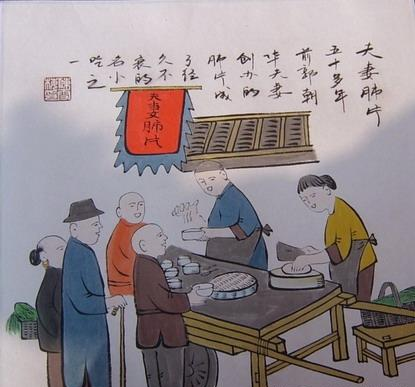 夫妻肺片
五十多年
前郭朝
华夫妻
创办的
肺片成
了经
久不
衰的
名小
吃之
一
夫妻肺片